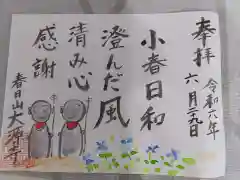 奉拝
令和六年
六月二十九日
小春日和
澄んだ風
清み心
感謝
春日山大